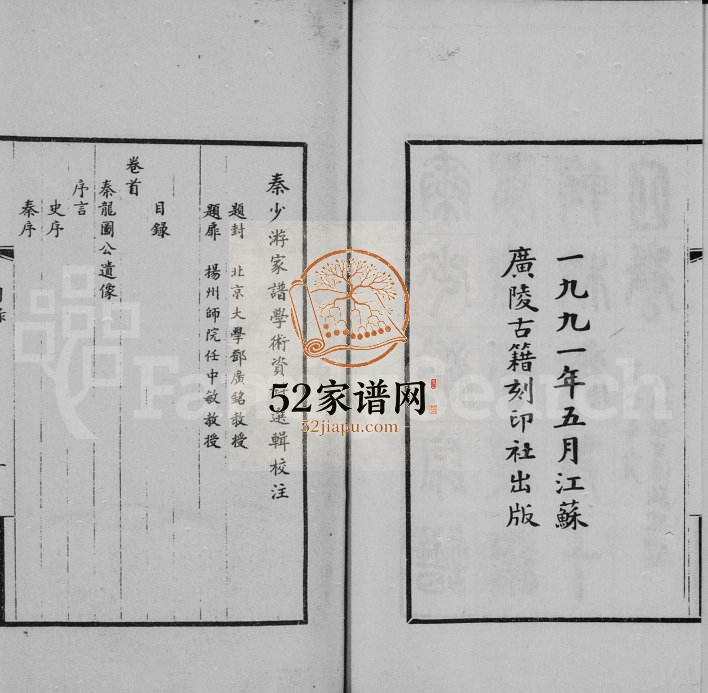 一九九一年五月江蘇
廣陵古籍刻印社出版
秦少游家譜學術資 選輯校注
題封 北京大學鄧廣銘教授
題扉 揚州師院任中敏教授
目錄
卷首
秦龍圖公遺像
序言
史序
秦序
52家谱网
52jiapu.com
FamilySearch